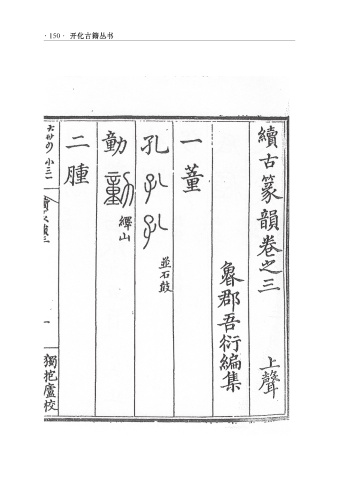 · 150 · 开化古籍丛书
續古篆韻卷之三
上聲
魯郡吾衍編集
一董
孔
並石鼓
動
繹山
二腫
獨抱廬校